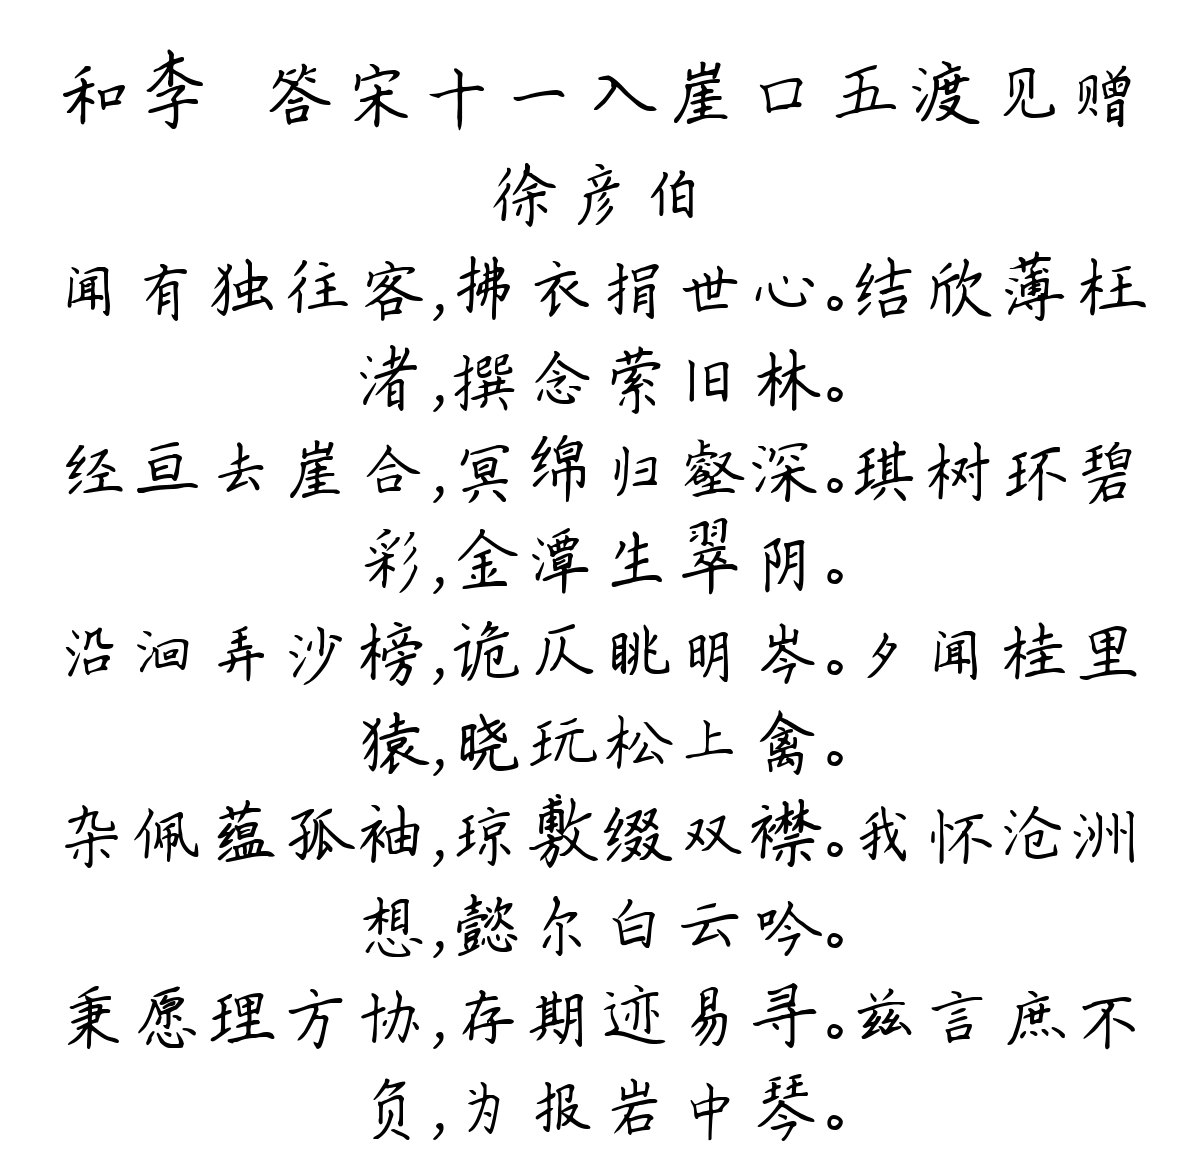 和李 答宋十一入崖口五渡见赠
徐彦伯
闻有独往客,拂衣捐世心。结欣薄枉
渚,撰念萦旧林。
经亘去崖合,冥绵归壑深。琪树环碧
彩,金潭生翠阴。
沿洄弄沙榜,诡仄眺明岑。夕闻桂里
猿,晓玩松上禽。
杂佩蕴孤袖,琼敷缀双襟。我怀沧洲
想,懿尔白云吟。
秉愿理方协,存期迹易寻。兹言庶不
负,为报岩中琴。